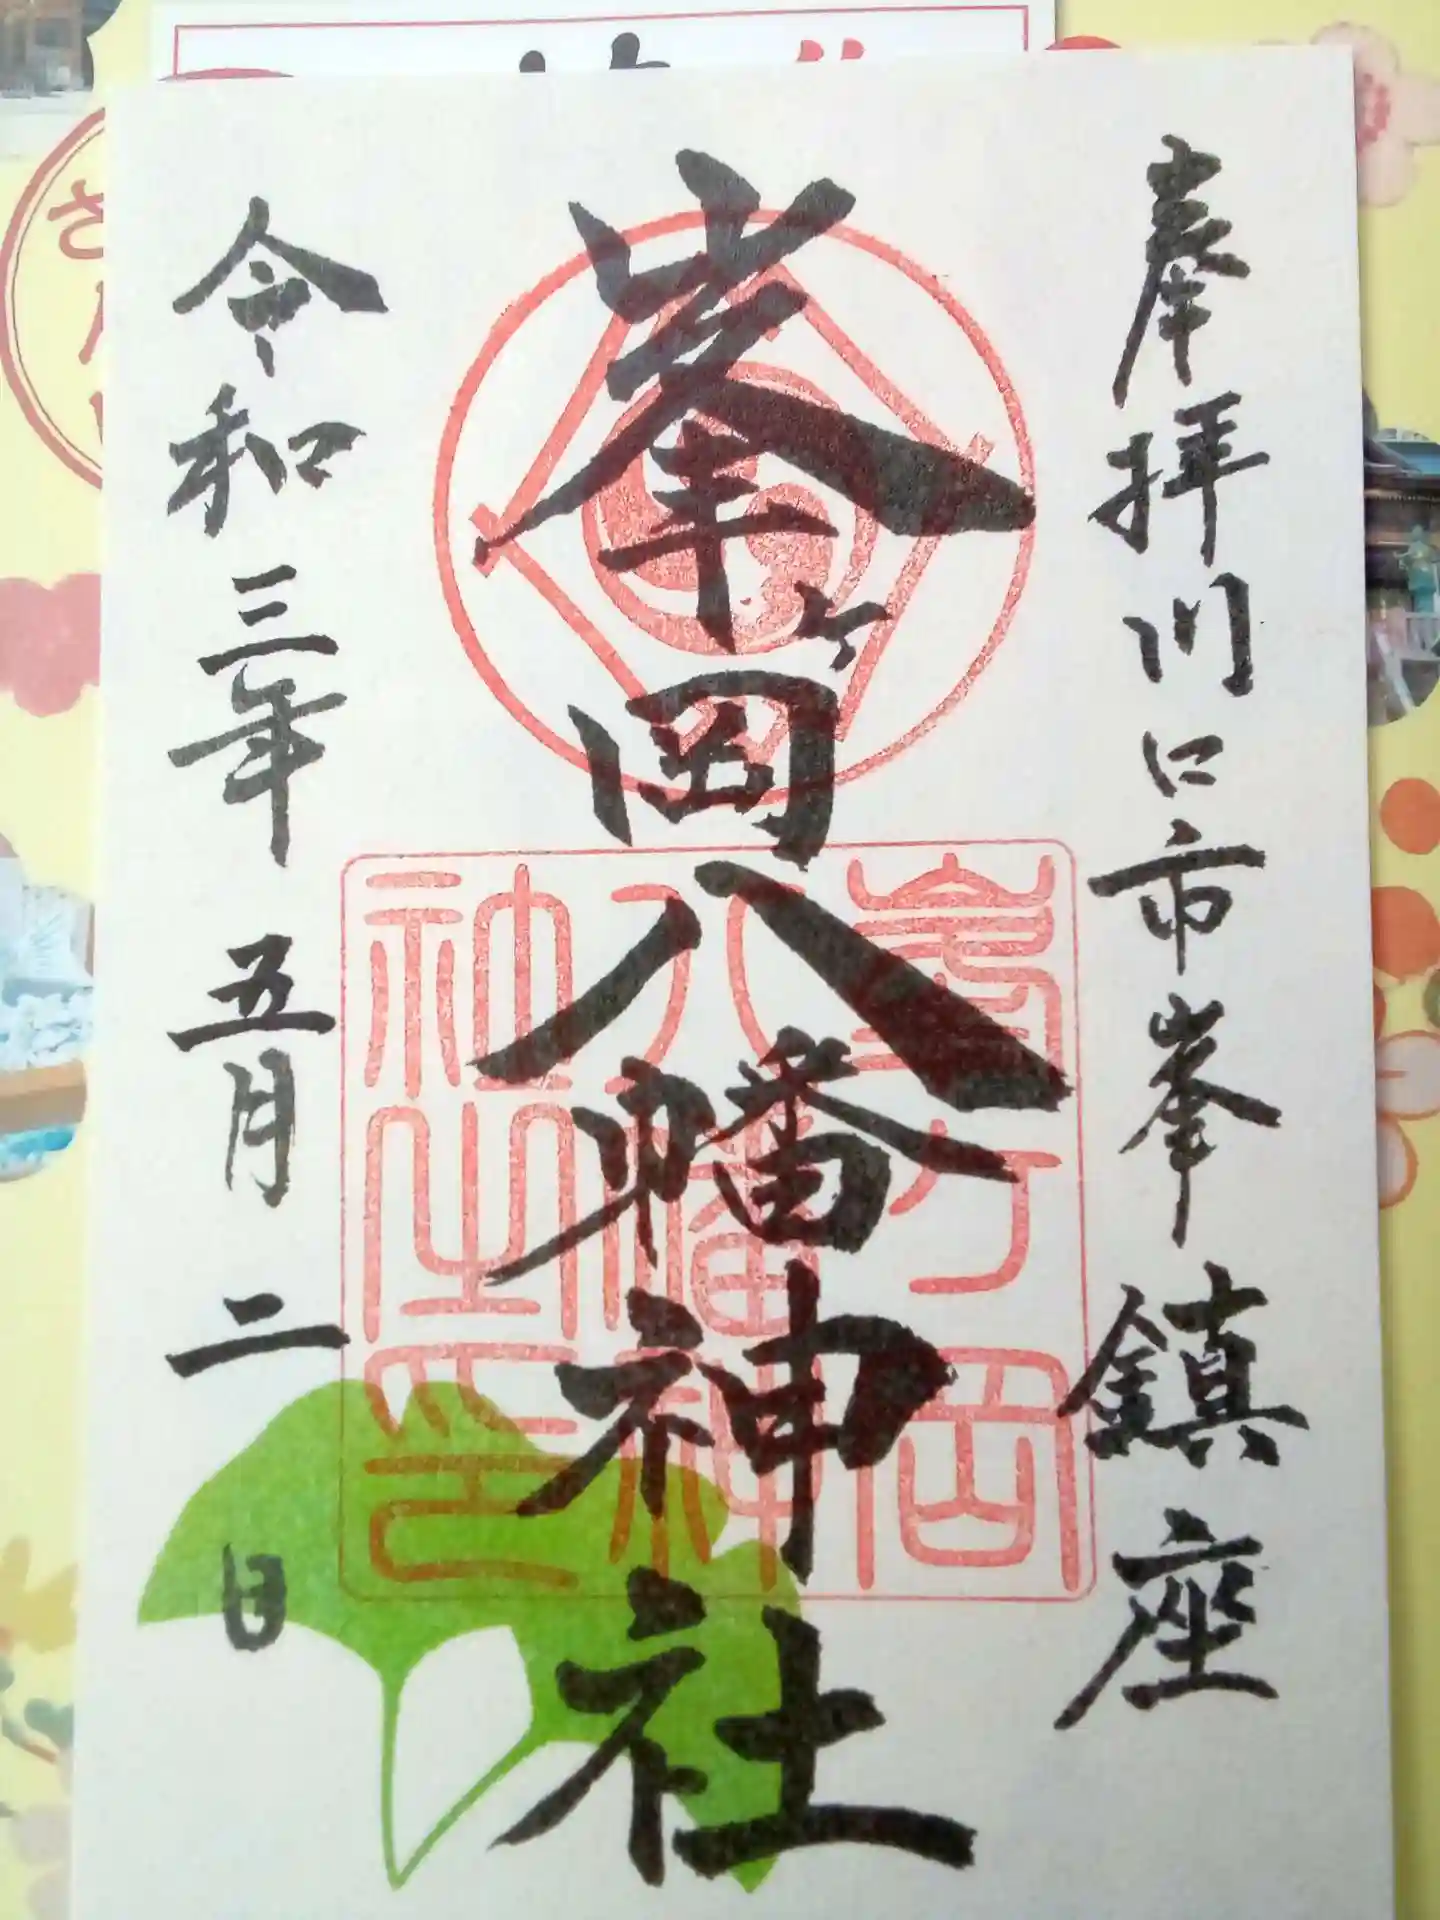 奉拝川口市峯鎮座
峯ヶ岡八幡神社
令和三年五月二日
峯ヶ岡
八幡神
社之印